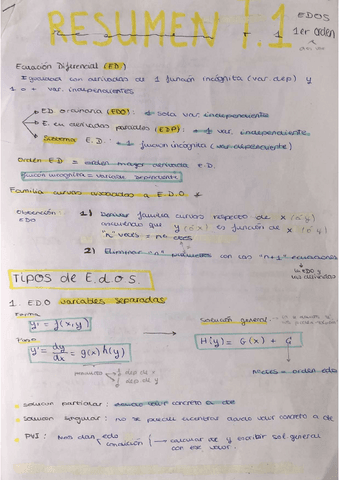 RESUMEN T.1
EDOS
1er orden
Ecuación Diferencial (ED)
Igualdad con derivadas de 1 función incógnita (var. dep) y
1 o + var. independientes
ED ordinaria (EDO): 1 sola var. independiente
E. en derivadas parciales (EDP): + 1 var. independiente
Sistema E.D.: + 1 función incógnita (var dependiente)
Orden E.D = orden mayor derivada E.D.
función incógnita = variable dependiente
Familia curvas asociadas a E.D.O
Obtención EDO
1) Derivar familia curvas respecto de x (ó y)
sabiendo que y (ó x) es función de x (ó y)
"n" veces = nº ctes
2) Eliminar "n" parámetros con las "n+1" ecuaciones
EDO y
sus derivadas
TIPOS de E.d.O.S.
1. EDO variables separadas
Forma
y' = f(x,y)
Paso
y' = dy/dx = g(x) h(y)
producto
f dep de x
f dep de y
Solución general
H(y) = G(x) + C
Nº ctes = orden edo
• solución particular: dando valor concreto a cte
• solución singular: no se puede encontrar dando valor concreto a cte
• PVI: Nos dan edo
condición
calcular cte y escribir sol general
con ese valor.